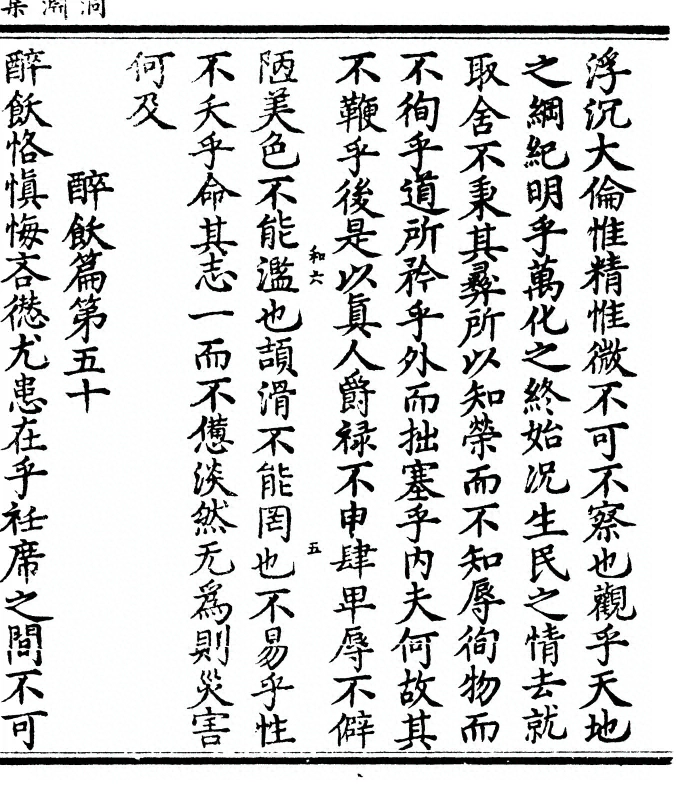 浮沉大倫惟精惟微不可不察也觀乎天地
之綱紀明乎萬化之終始況生民之情去就
取舍不秉其彛所以知榮而不知辱徇物而
不徇乎道所矜乎外而拙塞乎内夫何故其
不鞭乎後是以真人爵禄不申肆卑辱不僻
和六
五
陋美色不能濫也頡滑不能罔也不易乎性
不夭乎命其志一而不僽淡然无爲則災害
何及
醉飲篇第五十
醉飲恪慎悔吝愆尤患在乎衽席之間不可